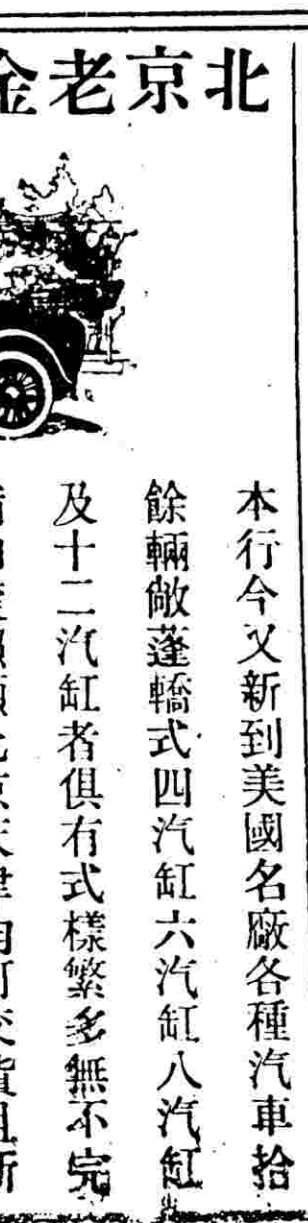 北京老金
本行今又新到美國名廠各種汽車拾
餘輛敞蓬轎式四汽缸六汽缸八汽缸
及十二汽缸者俱有式樣繁多無不完